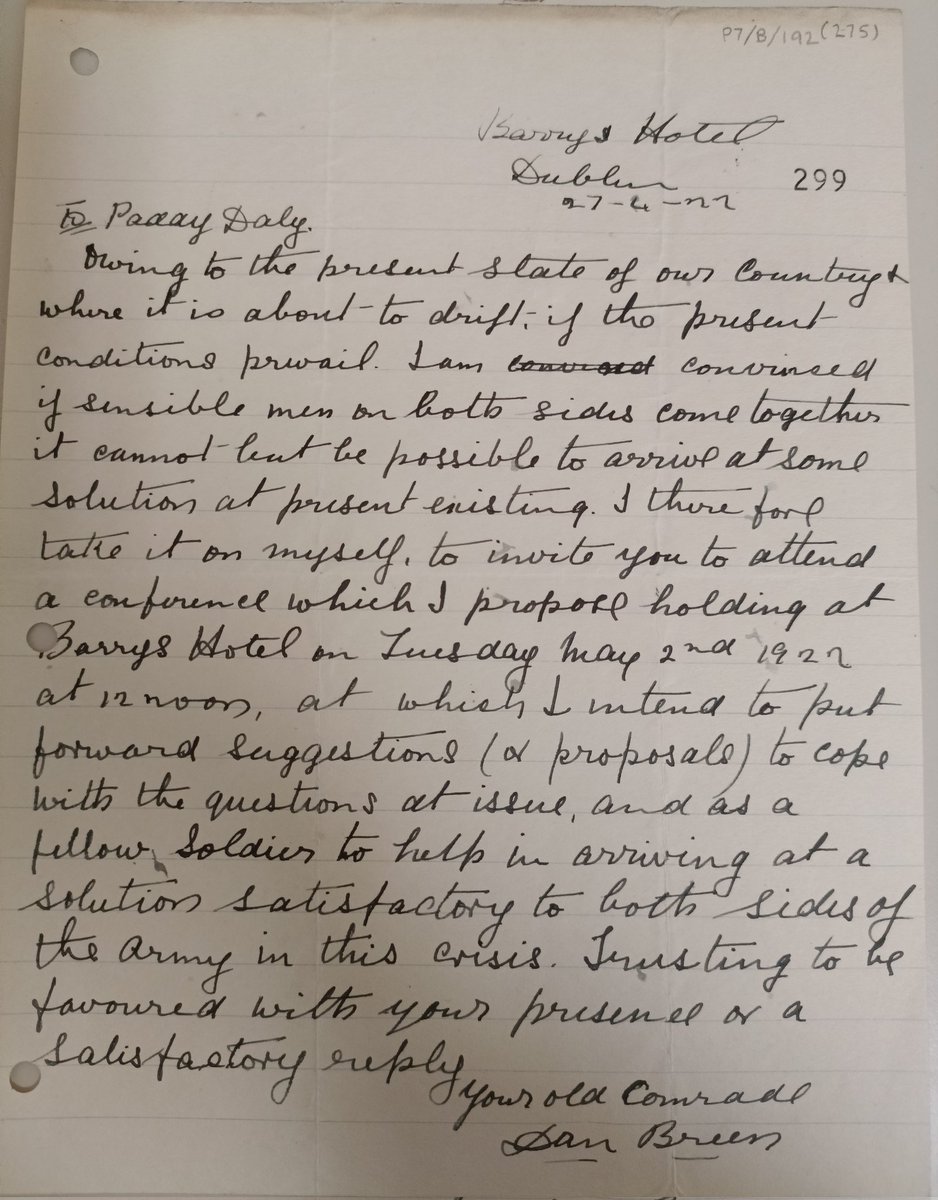 P7/B/192(275)
Barrys Hotel
Dublin
299
27-4-22
To Paddy Daly.
Owing to the present state of our Country &
where it is about to drift, if the present
conditions prevail. I am convinced
if sensible men on both sides come together
it cannot but be possible to arrive at some
solution at present existing. I there fore
take it on myself, to invite you to attend
a conference which I propose holding at
Barrys Hotel on Tuesday May 2nd 1922
at 12 noon, at which I intend to put
forward suggestions (or proposals) to cope
with the questions at issue, and as a
fellow Soldier to help in arriving at a
solution satisfactory to both sides of
the Army in this crisis. Trusting to be
favoured with your presence or a
Satisfactory reply
Your old Comrade
Dan Breen